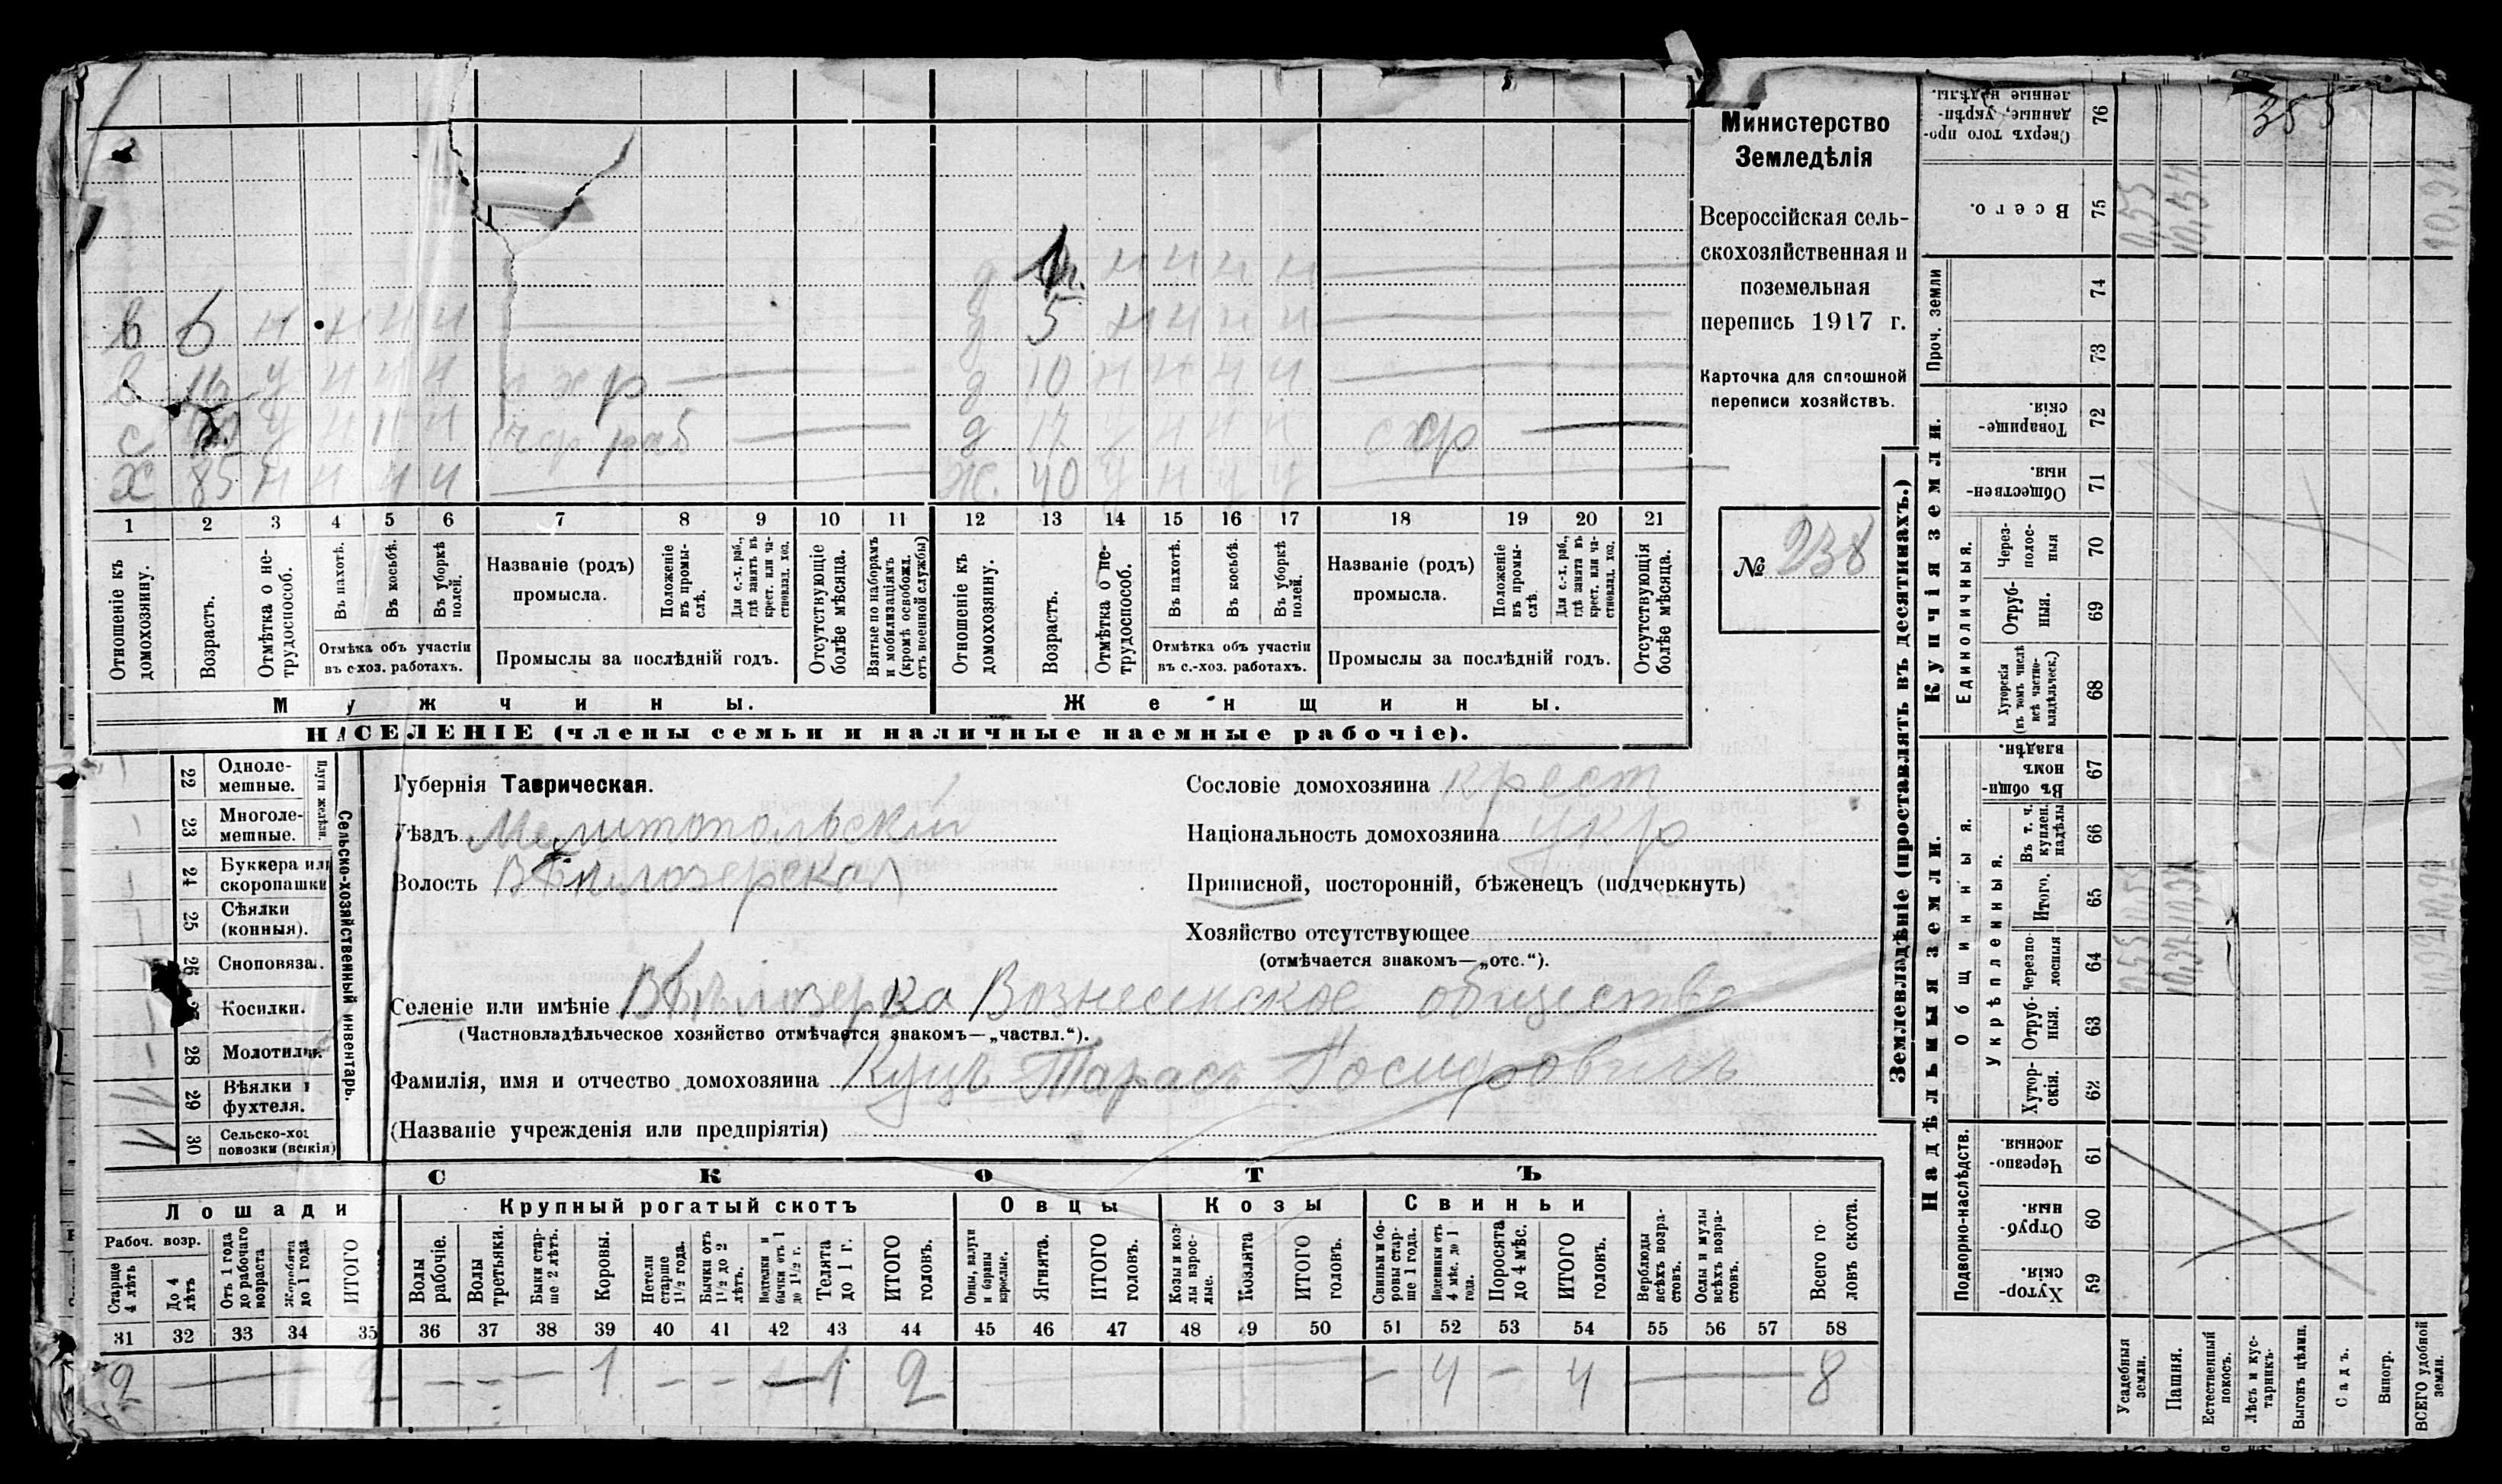 Министерство
Земледѣлія
Всероссійская сель-
скохозяйственная и
поземельная
перепись 1917 г.
Карточка для сплошной
переписи хозяйствъ.
№ 238
д н н н н
в 6 н н н н д 5 н н н н
в у н н н д 10 н н н н
с у н н н раб д 17 у н н н схр
х 85 н н н н ж. 40 у н у у
1 2 3 4 5 6 7 8 9 10 11 12 13 14 15 16 17 18 19 20 21
Отношеніе къ домохозяину.
Возрастъ.
Отмѣтка о не-трудоспособ.
Въ пахотѣ.
Въ косьбѣ.
Въ уборкѣ полей.
Отмѣтка объ участіи
въ с-хоз. работахъ.
Названіе (родъ)
промысла.
Положеніе въ промы-слѣ.
Для с.-х. раб., гдѣ занятъ въ крест. или ча-стновлад. хоз.
Промыслы за послѣдній годъ.
Отсутствующіе болѣе мѣсяца.
Взятые по наборамъ и мобилизаціямъ (кромѣ освобожд. отъ военной службы)
Отношеніе къ домохозяину.
Возрастъ.
Отмѣтка о не-трудоспособ.
Въ пахотѣ.
Въ косьбѣ.
Въ уборкѣ полей.
Отмѣтка объ участіи
въ с.-хоз. работахъ.
Названіе (родъ)
промысла.
Положеніе въ промы-слѣ.
Для с.-х. раб., гдѣ занята въ крест. или ча-стновлад. хоз.
Промыслы за послѣдній годъ.
Отсутствующія болѣе мѣсяца.
Мужчины.
Женщины.
НАСЕЛЕНІЕ (члены семьи и наличные наемные рабочіе).
Сельско-хозяйственный инвентарь.
Плуги желѣзн.
22 Одноле-мешные.
23 Многоле-мешные.
24 Буккера или скоропашки
25 Сѣялки (конныя).
26 Сноповяза.
27 Косилки.
28 Молотилки.
29 Вѣялки и фухтеля.
30 Сельско-хоз. повозки (всякія)
Губернія Таврическая.
Уѣздъ Мелитопольскій
Волость Бѣлозерская
Сословіе домохозяина крест
Національность домохозяина укр
Приписной, посторонній, бѣженецъ (подчеркнуть)
Хозяйство отсутствующее
(отмѣчается знакомъ—„отс.“).
Селеніе или имѣніе Бѣлозерка Вознесенское общество
(Частновладѣльческое хозяйство отмѣчается знакомъ—„частвл.“).
Фамилія, имя и отчество домохозяина Куцъ Тарасъ Іосифовичъ
(Названіе учрежденія или предпріятія)
СКОТЪ
Лошади
Крупный рогатый скотъ
Овцы
Козы
Свиньи
Рабоч. возр.
Старше 4 лѣтъ
До 4 лѣтъ
Отъ 1 года до рабочаго возраста
Жеребята до 1 года
ИТОГО
Волы рабочіе.
Волы третьяки.
Быки стар-ше 2 лѣтъ.
Коровы.
Нетели старше 1½ года.
Бычки отъ 1½ до 2 лѣтъ.
Подтелки и бычки отъ 1 до 1½ г.
Телята до 1 г.
ИТОГО головъ.
Овцы, валухи и бараны взрослые.
Ягнята.
ИТОГО головъ.
Козы и коз-лы взрос-лые.
Козлята
ИТОГО головъ.
Свиньи и бо-ровы стар-ше 1 года.
Подсвинки отъ 4 мѣс. до 1 года.
Поросята до 4 мѣс.
ИТОГО головъ.
Верблюды всѣхъ возра-стовъ.
Ослы и мулы всѣхъ возра-стовъ.
Всего го-ловъ скота.
31 32 33 34 35 36 37 38 39 40 41 42 43 44 45 46 47 48 49 50 51 52 53 54 55 56 57 58
2 — 2 — — — 1 — — — 1 2 — — 4 — 4 — 8
Землевладѣніе (проставлять въ десятинахъ.)
Надѣльныя земли.
Купчія земли.
Проч. земли
Подворно-наслѣдств.
Общинныя.
Укрѣпленныя.
Единоличныя.
Сверхъ того про-данные, укрѣп-ленные надѣлы. 76
Всего. 75
74
73
Товарище-скія. 72
Обществен-ныя. 71
Через-полос-ныя 70
Отруб-ныя. 69
Хуторскія (въ томъ числѣ всѣ частно-владѣльческ.) 68
Въ общин-номъ владѣн. 67
Въ т. ч. куплен. надѣлы 66
Итого. 65
Черезпо-лосныя 64
Отруб-ныя. 63
Хутор-скія. 62
Черезпо-лосныя. 61
Отруб-ныя. 60
Хутор-скія. 59
Усадебныя земли.
Пашня.
Естественный покосъ.
Лѣсъ и кус-тарникъ.
Выгонъ цѣлин.
Садъ.
Виногр.
ВСЕГО удобной земли.
0,55
10,37
10,92